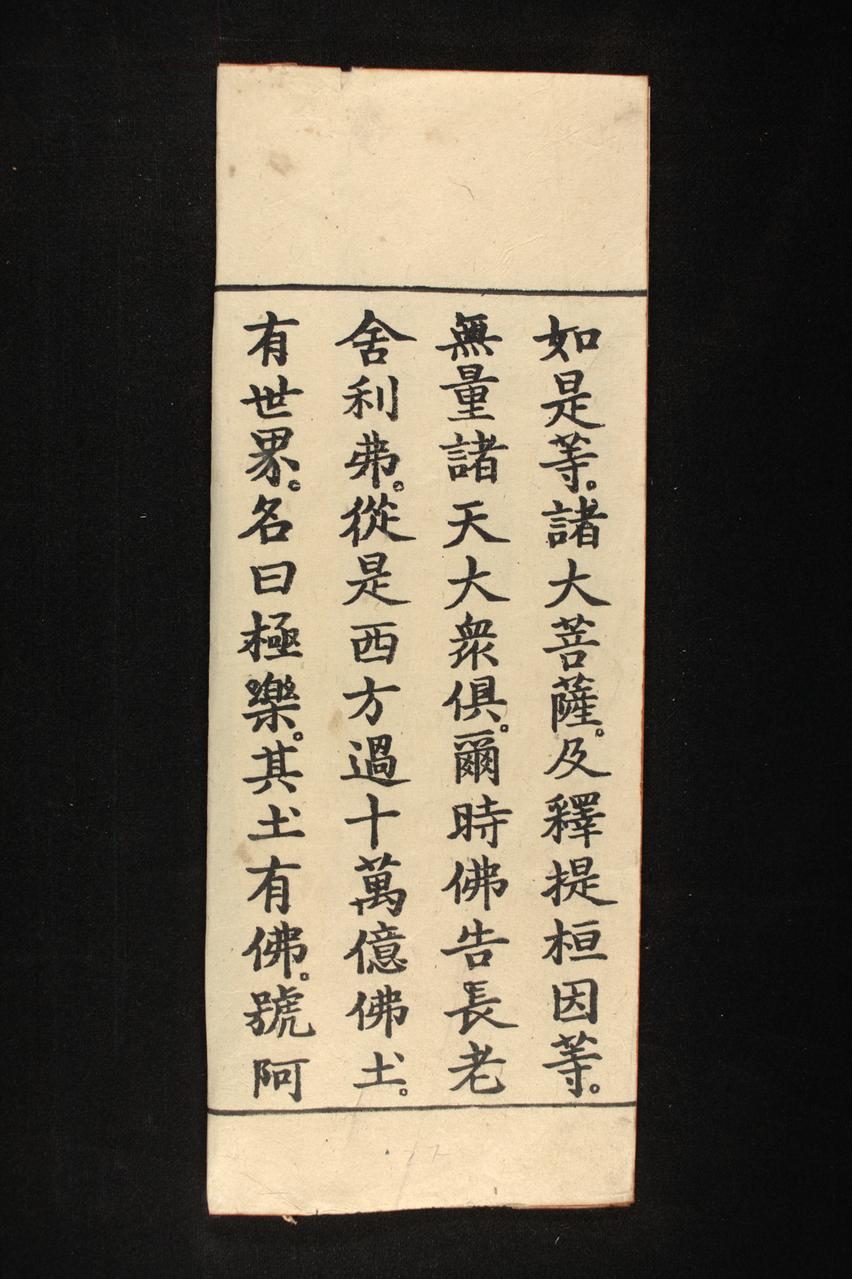 如是等。諸大菩薩。及釋提桓因等。
無量諸天大衆俱。爾時佛告長老
舍利弗。從是西方過十萬億佛土。
有世界。名曰極樂。其土有佛。號阿